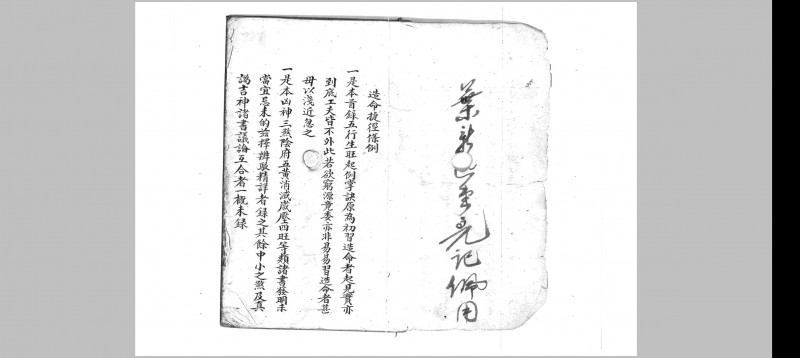 葉新 堂堯記佩用
造命捷徑條例
一是本首錄五行生旺起例掌訣原為初習造命者起見實亦
到底工夫皆不外此若欲窮源竟委亦非易易習造命者甚
毋以淺近忽之
一是本凶神三煞陰府五黃消滅歲壓四旺等類諸書發明未
當宜忌未的茲擇辨駁精詳者錄之其餘中小之煞及真
謁吉神諸書議論互合者一概未錄